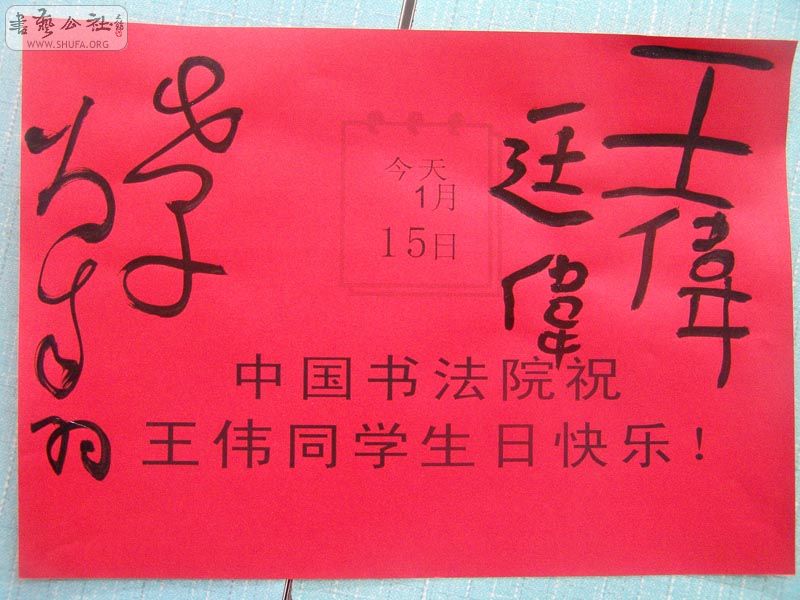 書艺公社
WWW.SHUFA.ORG
王偉
廷偉
今天
1月
15日
中国书法院祝
王伟同学生日快乐！